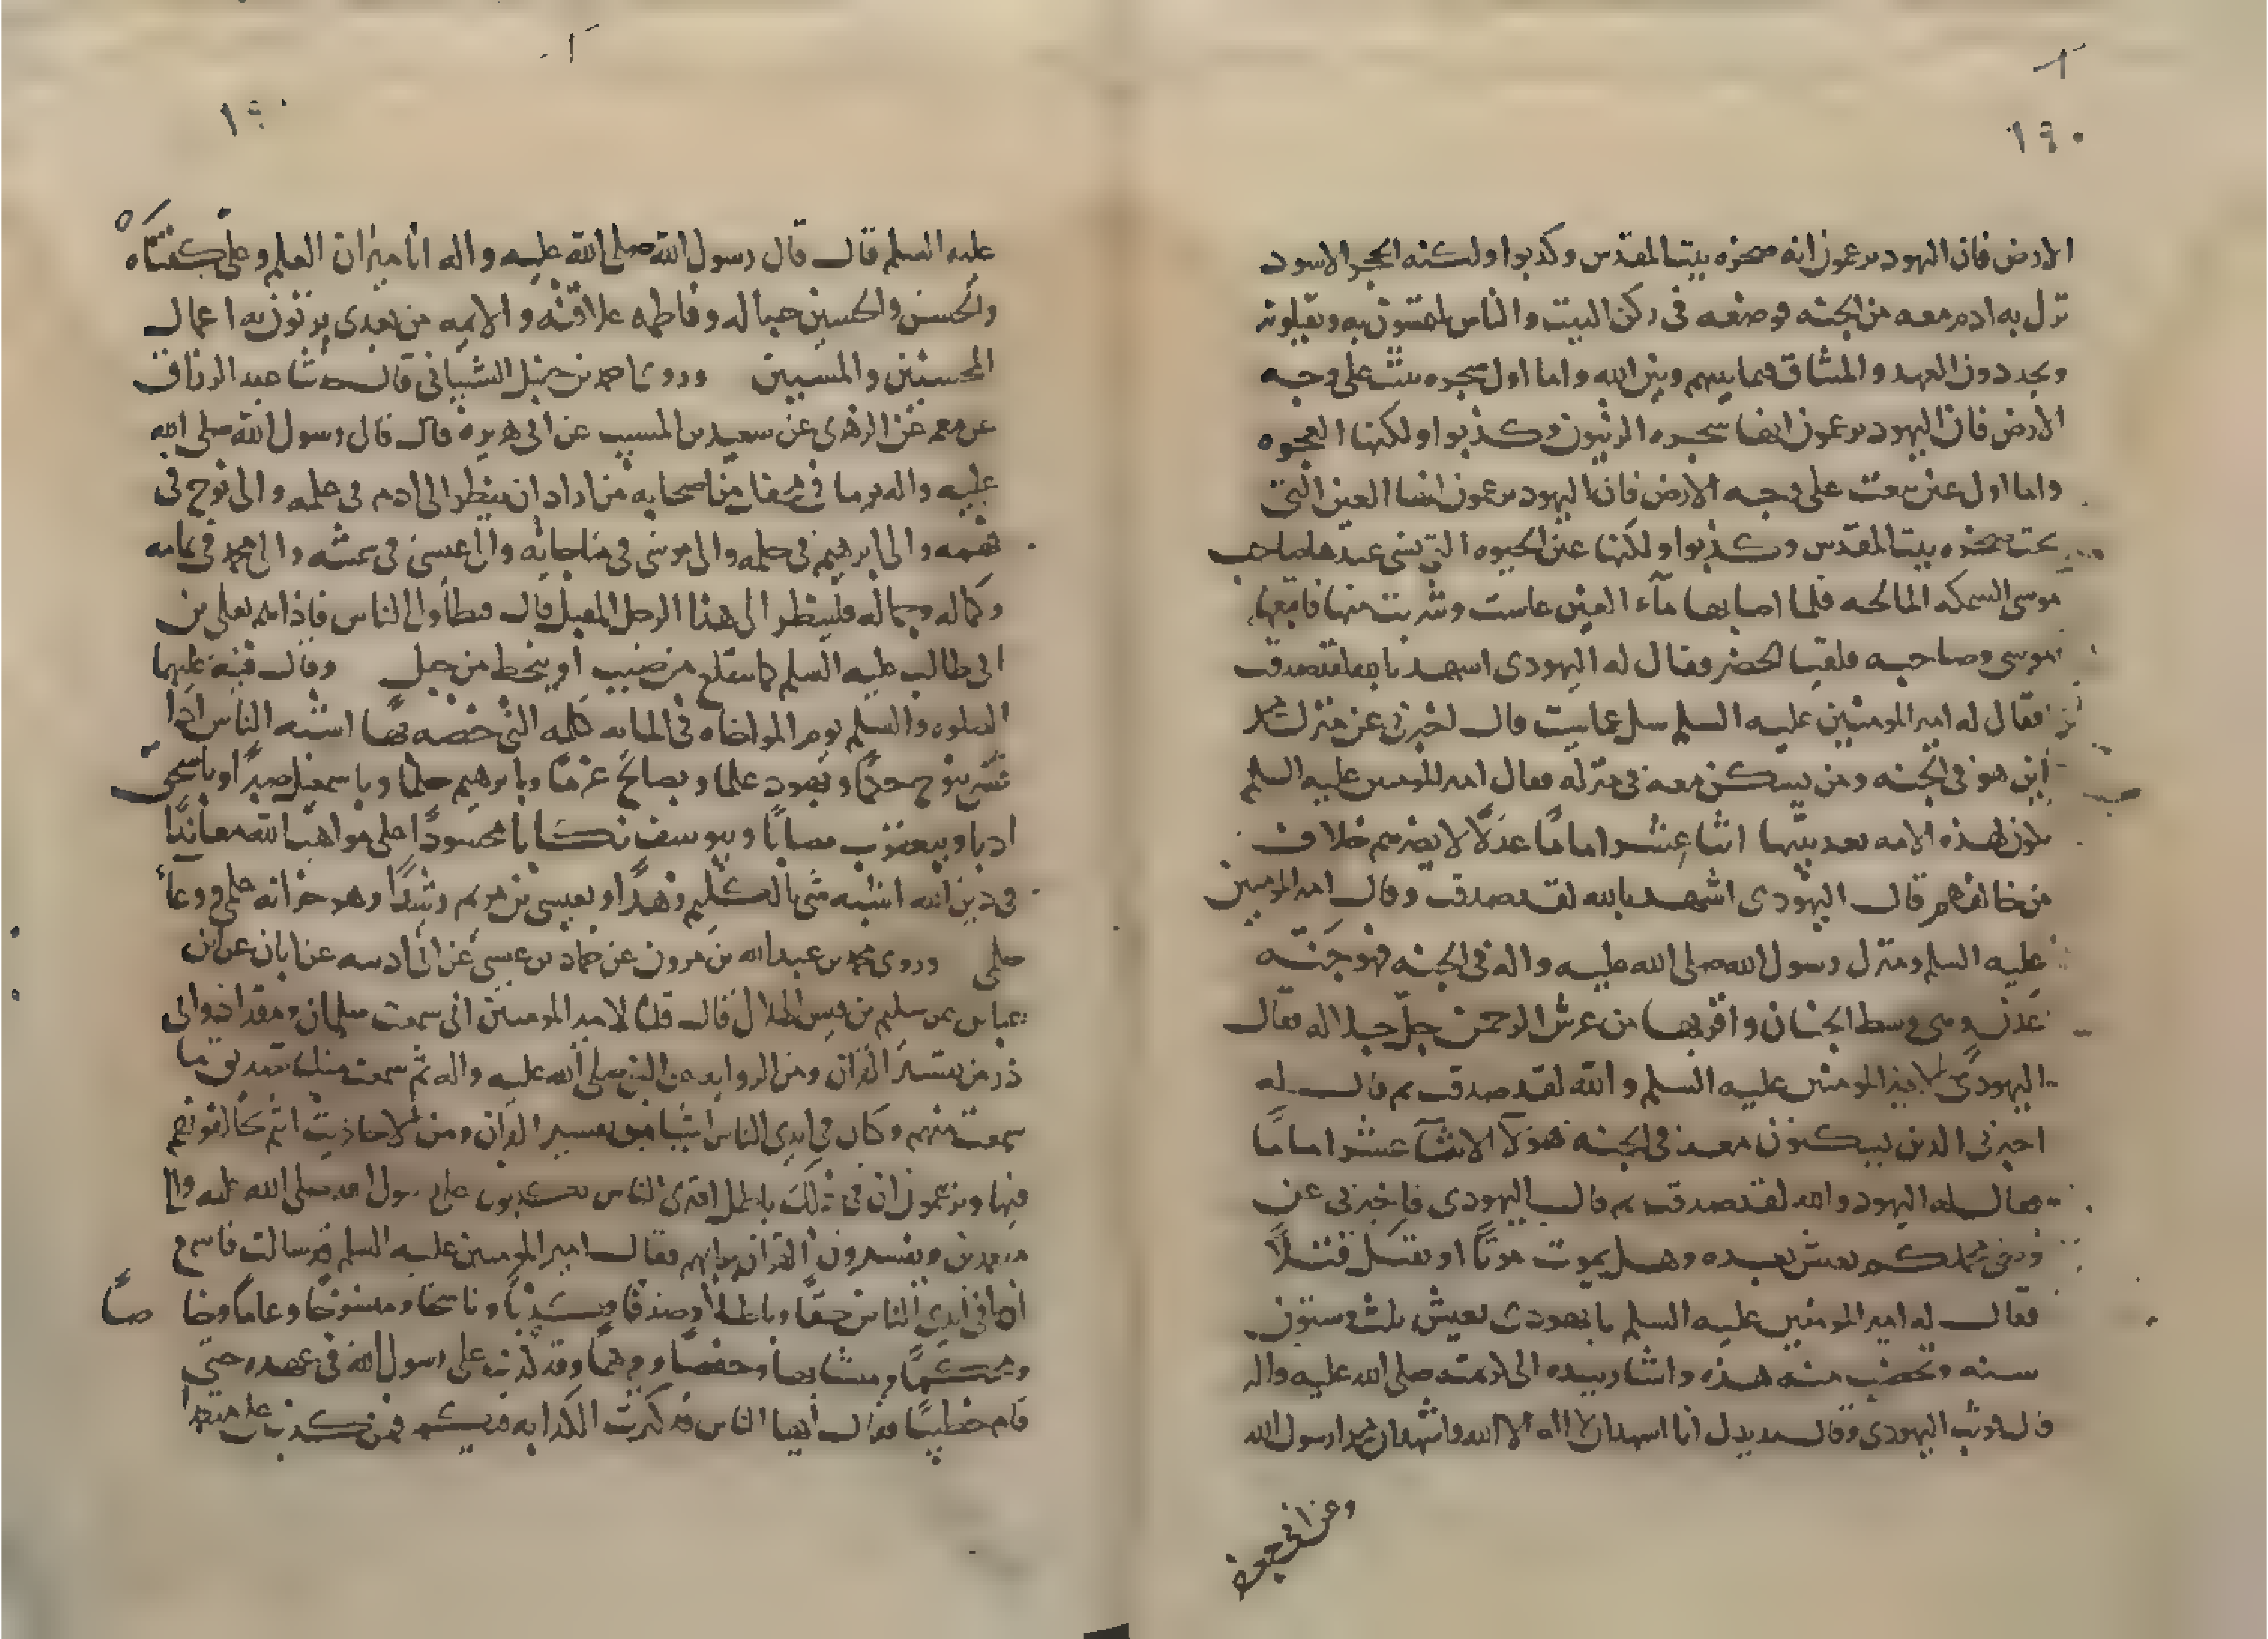 ١٩٠
الارض فان اليهود يزعمون انه صخره بيت المقدس وكذبوا ولكنه الحجر الاسود
نزل به ادم معه من الجنه فوضعه فى ركن البيت والناس يلمسون به ويقبلونه
ويجددون العهد والميثاق فيما بينهم وبين الله واما اول شجره نبتت على وجه
الارض فان اليهود يزعمون انها شجره الزيتون وكذبوا ولكنها العجوه
واما اول عين نبعت على وجه الارض فان اليهود يزعمون انها العين التى
تحت صخره بيت المقدس وكذبوا ولكنها عين الحيوه التى نسى عندها صاحب
موسى السمكه المالحه فلما اصابها مآء العين عاشت وشربت منها فاتبعها
موسى وصاحبه فلقيا الخضر فقال له اليهودى اشهد بالله لقد صدقت
فقال له امير المومنين عليه السلم سل عما شئت قال اخبرنى عن منزل محمد
اين هو فى الجنه ومن يسكن معه فى منزله فقال امير المومنين عليه السلم
يكون لهذه الامه بعد نبيها اثنا عشر اماما عدلا لا يضرهم خلاف
من خالفهم قال اليهودى اشهد بالله لقد صدقت وقال امير المومنين
عليه السلم ومنزل رسول الله صلى الله عليه واله فى الجنه فهو جنه
عدن وهى وسط الجنان واقربها من عرش الرحمن جل جلاله فقال
اليهودى لامير المومنين عليه السلم والله لقد صدقت ثم قال له
اخبرنى الذين يسكنون معه فى الجنه هولآ الاثنا عشر اماما
فقال له اليهود والله لقد صدقت ثم قال اليهودى فاخبرنى عن
وصى محمد كم يعيش بعده وهل يموت موتًا او يقتل قتلًا
فقال له امير المومنين عليه السلم يا يهودى يعيش ثلث وستون
سنه وتخضب منه هذه واشار بيده الى لحيته صلى الله عليه واله
قال فوثب اليهودى وقال مد يدك انا اشهد ان لا اله الا الله واشهد ان محمدا رسول الله
وعن ابى جعفر
١٩٠
عليه السلم قال قال رسول الله صلى الله عليه واله انا ميزان العلم وعلى كفتاه
والحسن والحسين حباله وفاطمه علاقته والايمه من بعدى يزنون به اعمال
المحسنين والمسيين وروى احمد بن حنبل الشيبانى قال حدثنا عبد الرزاق
عن معمر عن الزهرى عن سعيد بن المسيب عن ابى هريره قال قال رسول الله صلى الله
عليه واله يوما فى من اصحابه من اراد ان ينظر الى ادم فى علمه والى نوح فى
فهمه والى ابرهيم فى حلمه والى موسى فى مناجاته والى عيسى فى سمته والى محمد فى تمامه
وكماله وجماله فلينظر الى هذا الرجل المقبل قال فتطاول الناس فاذا هم بعلى بن
ابى طالب عليه السلم كانما ينقلع من صبب او ينحط من جبل وقال فيه عليهما
الصلوه والسلم يوم المواخاه فى كلمه التى خصه بها اشبه الناس اذا
بنوح وبهود علما وبصالح عزمًا وبابرهيم حلما وباسمعيل صبرًا وباسحق
ادبا وبيعقوب مصابًا وبيوسف محسودًا على مواهب الله معاندًا
فى دين الله اشبه شى بالكليم زهدًا وبعيسى بن مريم رشدًا وهو خزانه علمى ووعآء
حلمى وروى محمد بن عبد الله بن مرون عن حماد بن عيسى عن ابن اذينه عن ابان عن ابن
عباس عن سليم بن قيس الهلالى قال قلت لامير المومنين انى سمعت سلمان ومقداد وابى
ذر من تفسير القران ومن الروايه عن النبى صلى الله عليه واله ثم سمعت منك تصديق ما
سمعت منهم وكان فى ايدى الناس اشيا من تفسير القران ومن الاحاديث انتم تخالفونهم
فيها وتزعمون ان فى ذلك باطل افترى الناس يكذبون على رسول الله صلى الله عليه واله
متعمدين ويفسرون القران برايهم فقال امير المومنين عليه السلم قد سالت فاسمع
ان فى ايدى الناس حقًا وباطلًا وصدقا وكذبًا وناسخا ومنسوخًا وعامًا وخاصًا
ومحكمًا ومتشابها وحفظًا ووهمًا وقد كذب على رسول الله فى عهده حتى
قام خطيبًا فقال ايها الناس قد كثرت الكذابه فيكم فمن كذب على متعمدا